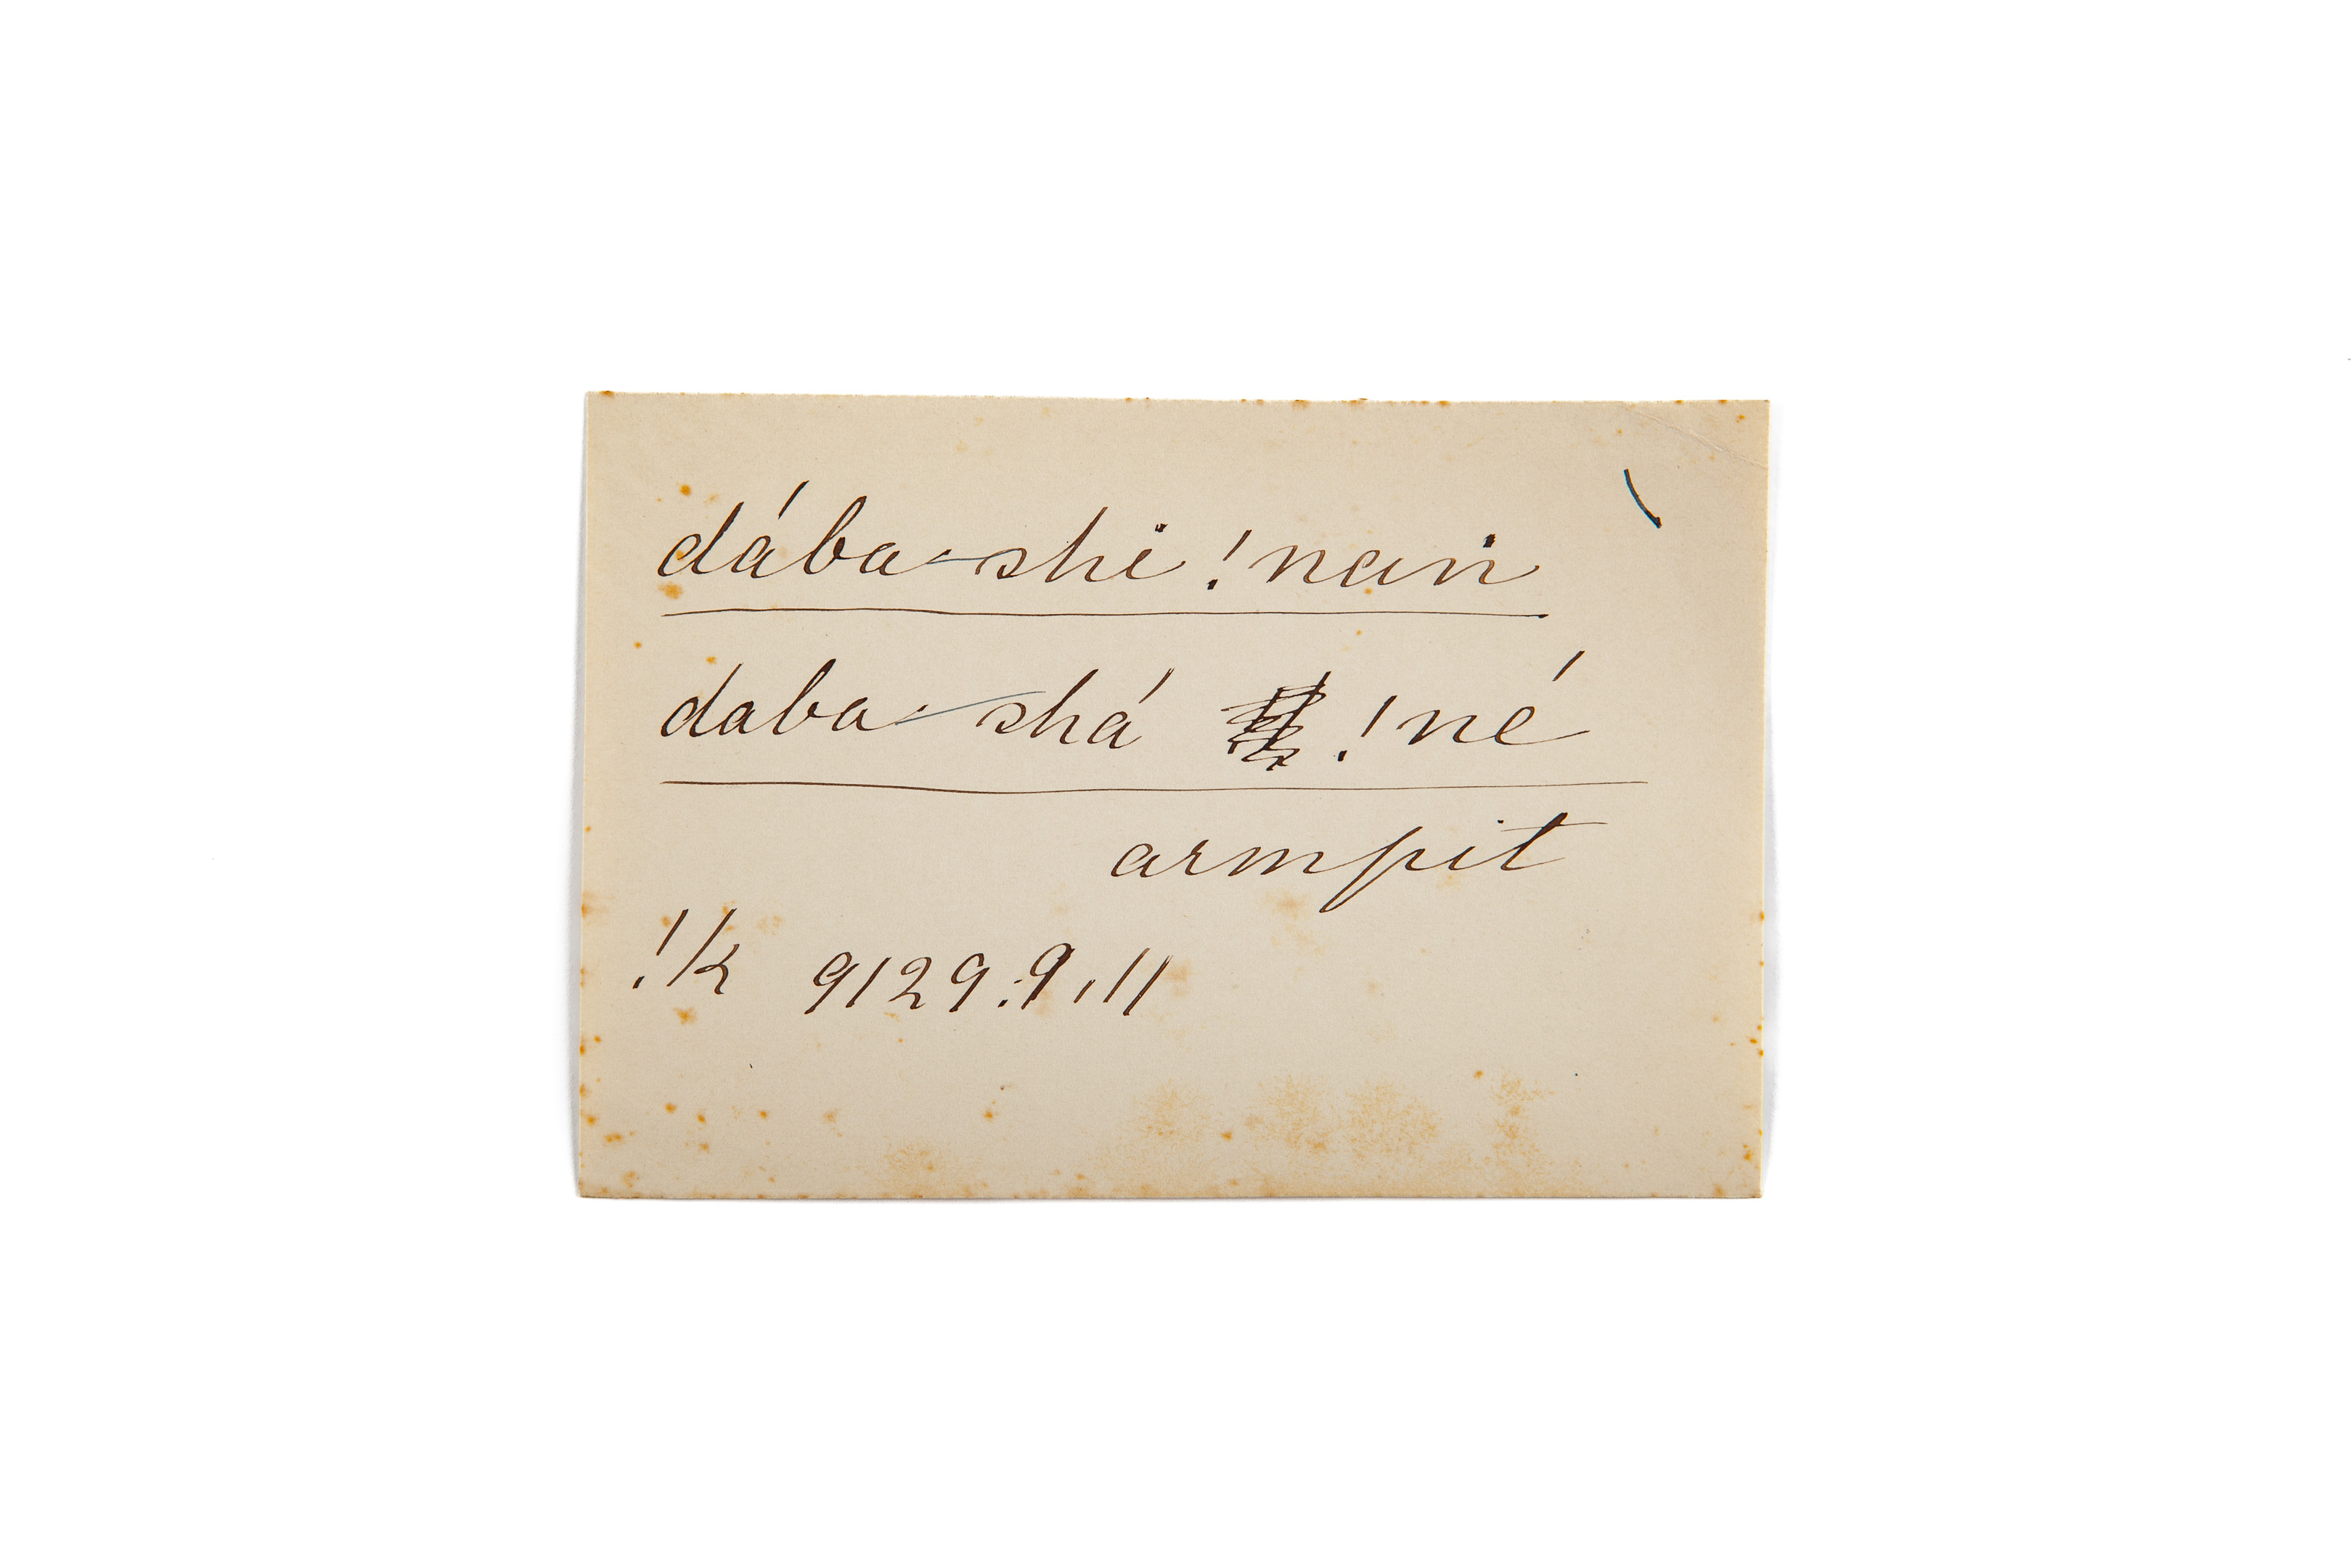 dába-shi !nan
daba-shá !né
armpit
!k 9129.9,11